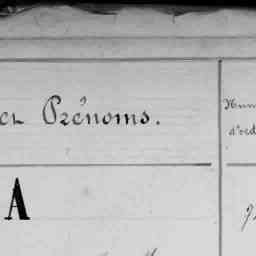 et Prénoms.
Num
d'ord
A